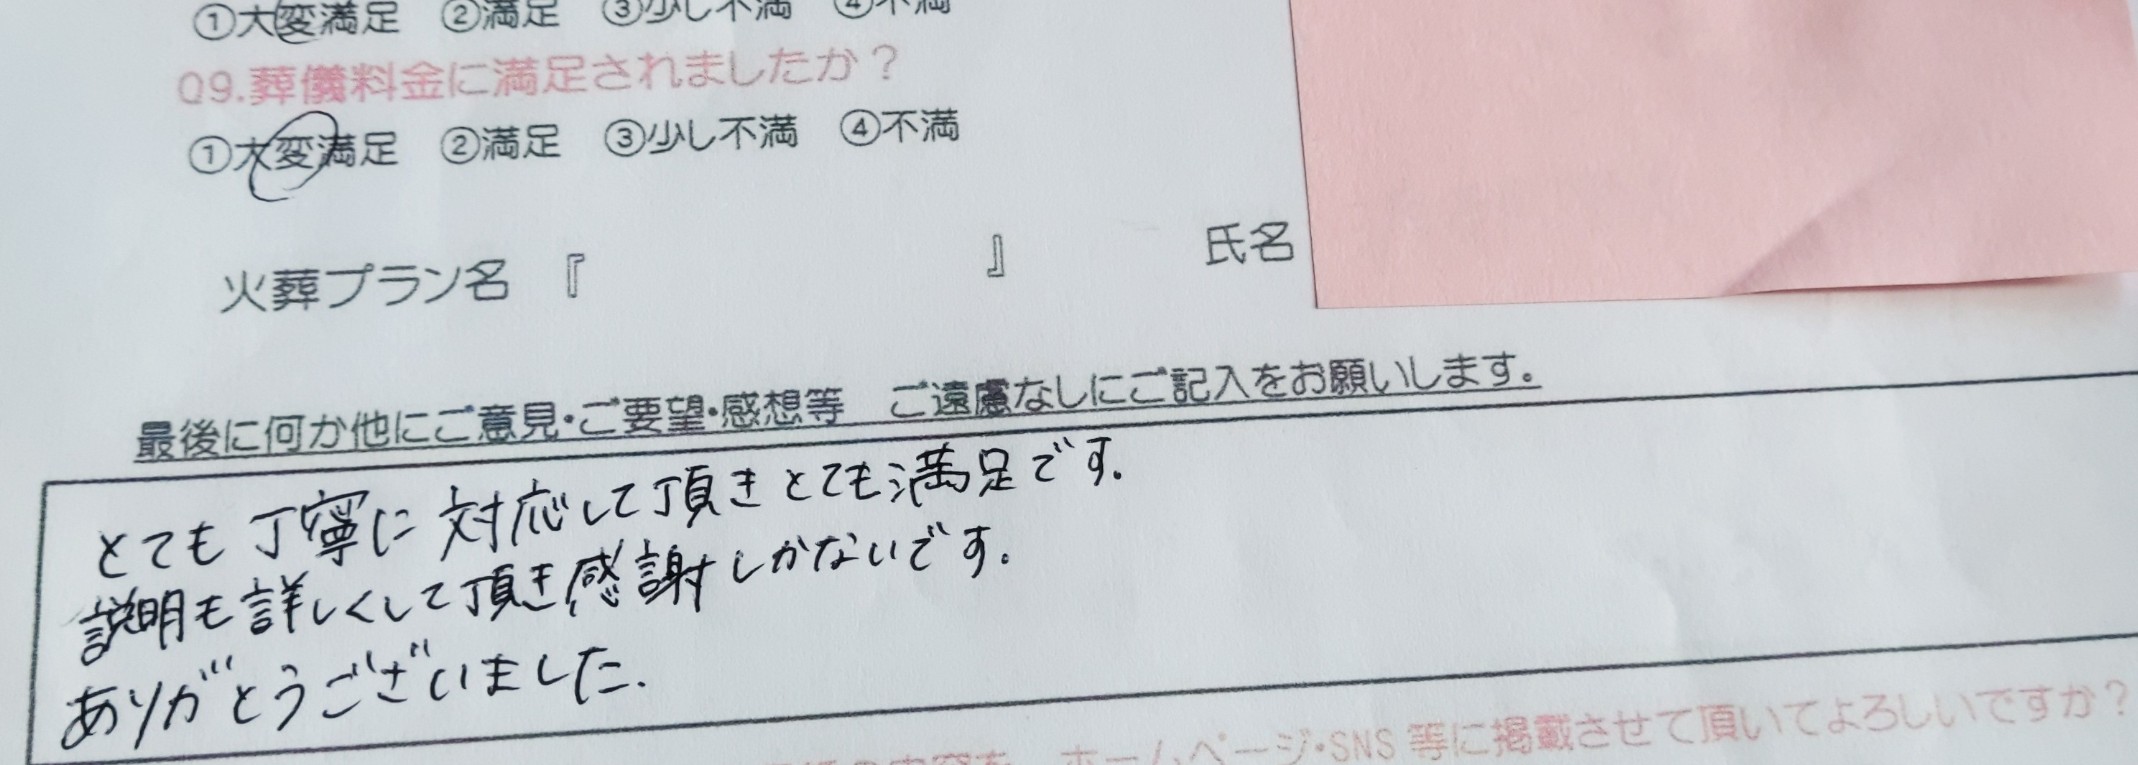 ①大変満足 ②満足 ③少し不満 ④不満
Q9.葬儀料金に満足されましたか？
①大変満足 ②満足 ③少し不満 ④不満
火葬プラン名 『 』 氏名
最後に何か他にご意見・ご要望・感想等 ご遠慮なしにご記入をお願いします。
とても丁寧に対応して頂きとても満足です.
説明も詳しくして頂き感謝しかないです.
ありがとうございました.
ホームページ・SNS等に掲載させて頂いてよろしいですか？